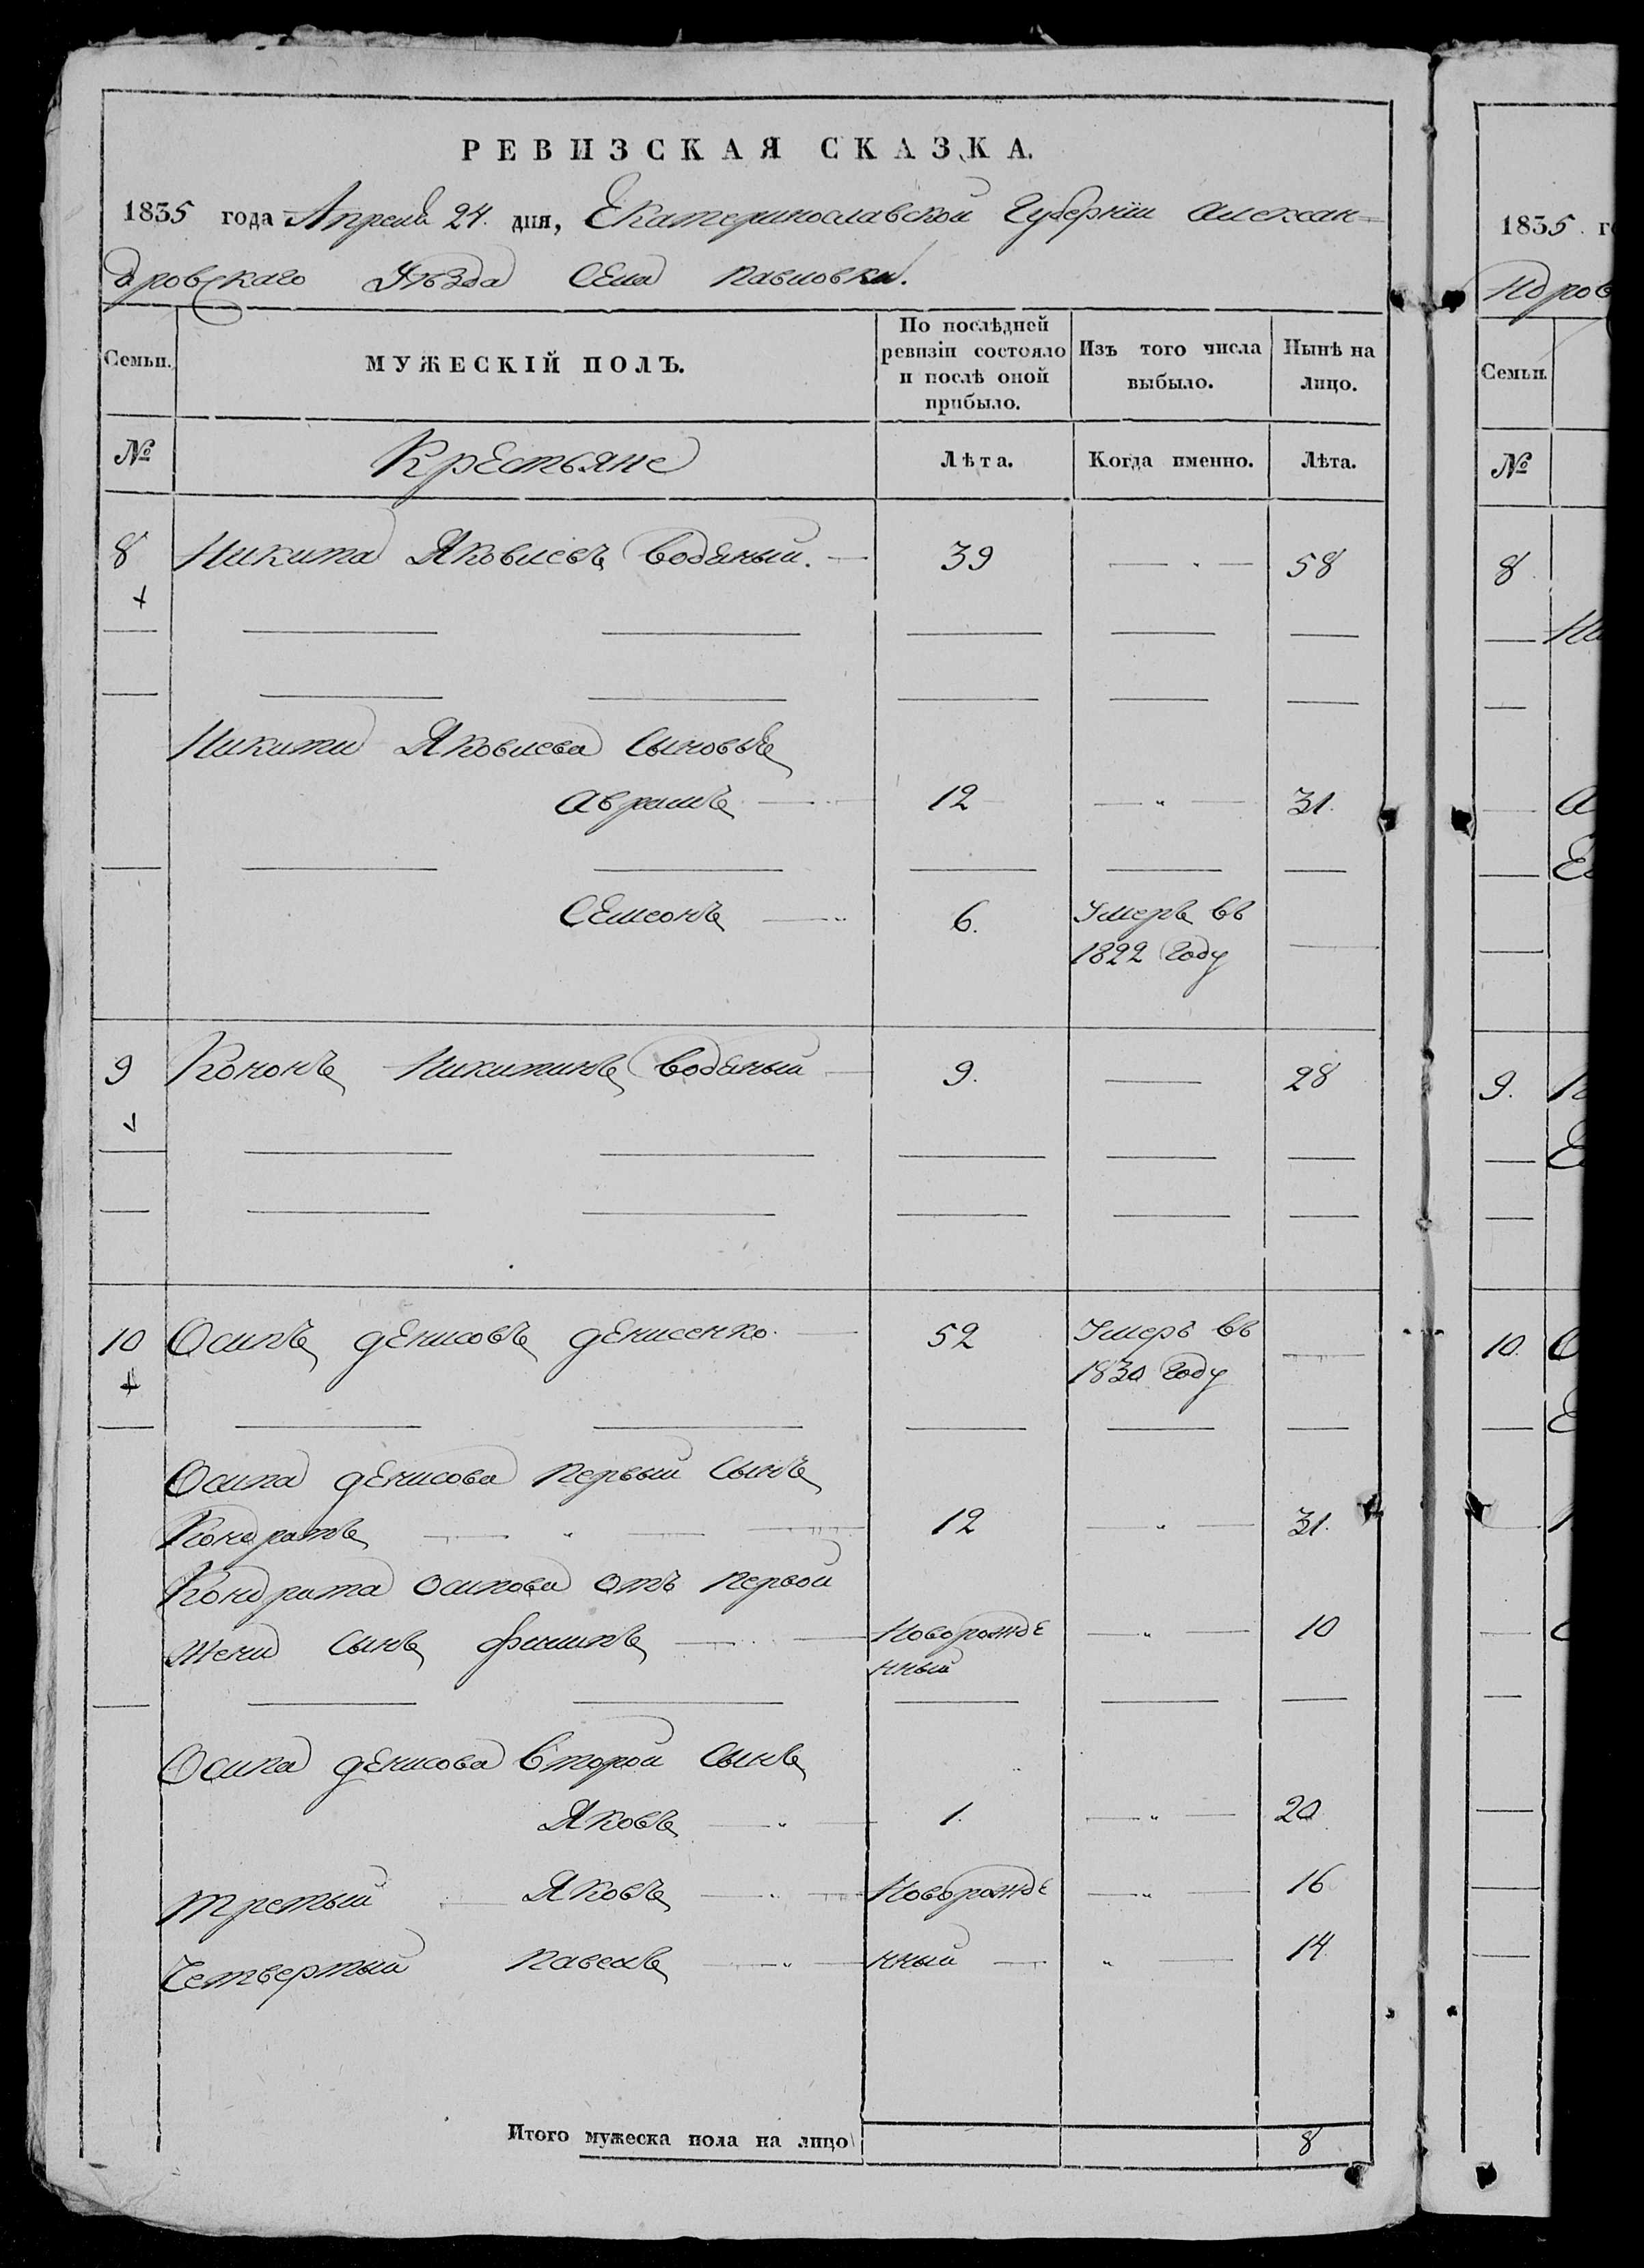 РЕВИЗСКАЯ СКАЗКА.
1835 года Апреля 24. дня, Екатеринославской Губернии Алексан=
дровскаго Уѣзда Села Павловки.
Семьи. МУЖЕСКІЙ ПОЛЪ. По послѣдней ревизіи состояло и послѣ оной прибыло. Изъ того числа выбыло. Нынѣ на лицо.
№ Крестьяне Лѣта. Когда именно. Лѣта.
8 Никита Яковлевъ Водяный. 39 58
Никиты Яковлева Сыновья
Аврамъ 12 31.
Семеонъ 6. Умеръ въ
1822 Году
9 Кононъ Никитинъ Водяный 9. 28
10 Осипъ Денисовъ Денисенко. 52 Умеръ въ
1830 Году
Осипа Денисова первый Сынъ
Кондратъ 12 31.
Кондрата Осипова отъ первой
жены Сынъ Филипъ Новорожде 10
нный
Осипа Денисова Второй Сынъ
Яковъ 1. 20
третый Яковъ Новорожде 16
Четвертый Павелъ нный 14.
Итого мужеска пола на лицо 8
1835. го
ндров
Семьи.
№
8
9.
10.